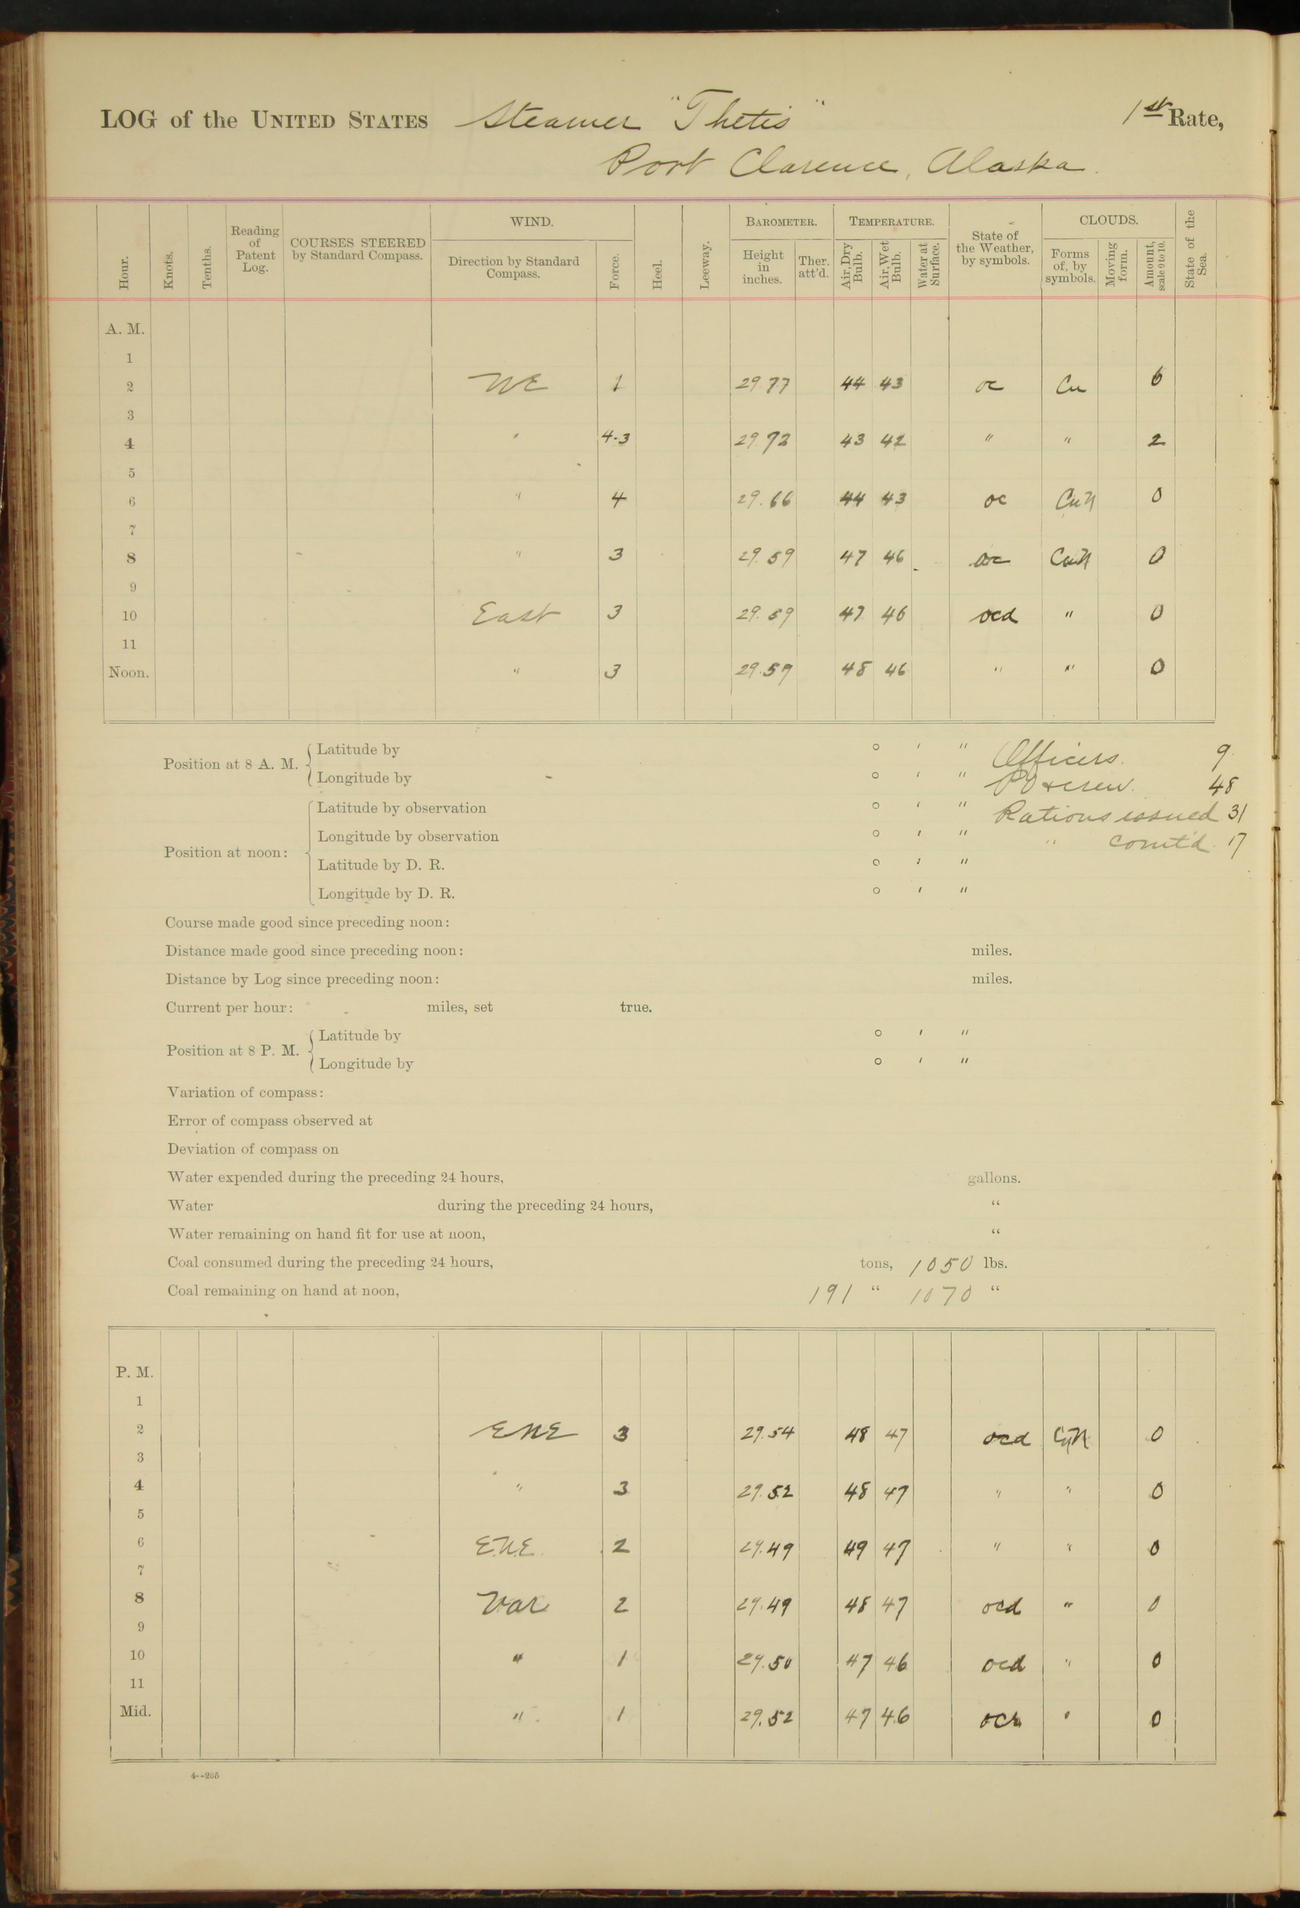 LOG of the UNITED STATES Steamer "Thetis" 1st Rate,
Port Clarence, Alaska.
Hour. Knots. Tenths. Reading of Patent Log. COURSES STEERED by Standard Compass. WIND. Direction by Standard Compass. Force. Heel. Leeway. BAROMETER. Height in inches. Ther. att'd. TEMPERATURE. Air, Dry Bulb. Air, Wet Bulb. Water at Surface. State of the Weather, by symbols. CLOUDS. Forms of, by symbols. Moving form. Amount, scale 0 to 10. State of the Sea.
A. M.
1
2 NE 1 29.77 44 43 oc Cu 6
3
4 " 4-3 29.72 43 42 " " 2
5
6 " 4 29.66 44 43 oc CuN 0
7
8 " 3 29.59 47 46 oc CuN 0
9
10 East 3 29.59 47 46 ocd " 0
11
Noon. " 3 29.59 48 46 " " 0
Position at 8 A. M. Latitude by ° ' " Officers. 9
Longitude by ° ' " PO & crew. 48
Position at noon: Latitude by observation ° ' " Rations issued 31
Longitude by observation ° ' " " comt'd. 17
Latitude by D. R. ° ' "
Longitude by D. R. ° ' "
Course made good since preceding noon:
Distance made good since preceding noon: miles.
Distance by Log since preceding noon: miles.
Current per hour: miles, set true.
Position at 8 P. M. Latitude by ° ' "
Longitude by ° ' "
Variation of compass:
Error of compass observed at
Deviation of compass on
Water expended during the preceding 24 hours, gallons.
Water during the preceding 24 hours, "
Water remaining on hand fit for use at noon, "
Coal consumed during the preceding 24 hours, tons, 1050 lbs.
Coal remaining on hand at noon, 191 " 1070 "
P. M.
1
2 ENE 3 29.54 48 47 ocd CuN 0
3
4 " 3 29.52 48 47 " " 0
5
6 E.N.E. 2 29.49 49 47 " " 0
7
8 Var 2 29.49 48 47 ocd " 0
9
10 " 1 29.50 47 46 ocd " 0
11
Mid. " 1 29.52 47 46 ocr " 0
4--265